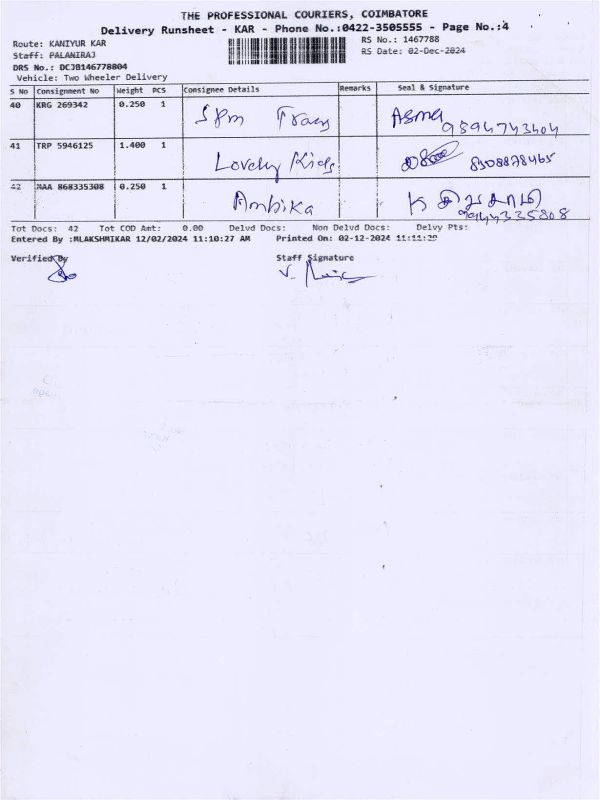 THE PROFESSIONAL COURIERS, COIMBATORE
Delivery Runsheet - KAR - Phone No.:0422-3505555 - Page No.:4
Route: KANIYUR KAR
RS No.: 1467788
Staff: PALANIRAJ
RS Date: 02-Dec-2024
DRS No.: DCJB146778804
Vehicle: Two Wheeler Delivery
S No Consignment No Weight PCS Consignee Details Remarks Seal & Signature
40 KRG 269342 0.250 1 Asma
9594743404
41 TRP 5946125 1.400 1 Lovely Kids 8508878465
42 MAA 868335308 0.250 1 Ambika
9944335808
Tot Docs: 42 Tot COD Amt: 0.00 Delvd Docs: Non Delvd Docs: Delvy Pts:
Entered By :MLAKSHMIKAR 12/02/2024 11:10:27 AM Printed On: 02-12-2024 11:11:29
Verified By Staff Signature